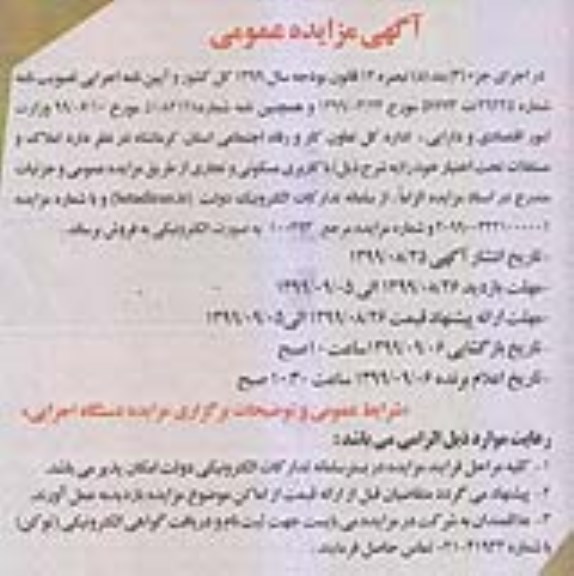 آگهی مزایده عمومی
در اجرای جزء (۳) بند (د) تبصره ۱۲ قانون بودجه سال ۱۳۹۹ کل کشور و آیین نامه اجرایی تصویب نامه
شماره مورخ و همچنین نامه شماره مورخ وزارت
امور اقتصادی و دارایی ، اداره کل تعاون کار و رفاه اجتماعی استان کرمانشاه در نظر دارد املاک و
مستغلات تحت اختیار خود را (به شرح ذیل) با کاربری مسکونی و تجاری از طریق مزایده عمومی و جزئیات
مندرج در اسناد مزایده الزاماً، از سامانه تدارکات الکترونیک دولت (setadiran.ir) و با شماره مزایده
و شماره مزایده مرجع به صورت الکترونیکی به فروش برساند.
-تاریخ انتشار آگهی ۱۳۹۹/۰۸/۲۵
-مهلت بازدید ۱۳۹۹/۰۸/۲۶ الی ۱۳۹۹/۰۹/۰۵
-مهلت ارائه پیشنهاد قیمت ۱۳۹۹/۰۸/۲۶ الی ۱۳۹۹/۰۹/۰۵
-تاریخ بازگشایی ۱۳۹۹/۰۹/۰۶ ساعت ۱۰ صبح
-تاریخ اعلام برنده ۱۳۹۹/۰۹/۰۶ ساعت ۱۰:۳۰ صبح
«شرایط عمومی و توضیحات برگزاری مزایده دستگاه اجرایی»
رعایت موارد ذیل الزامی می باشد:
۱- کلیه مراحل فرایند مزایده در بستر سامانه تدارکات الکترونیکی دولت امکان پذیر می باشد.
۲- پیشنهاد می گردد متقاضیان قبل از ارائه قیمت از اماکن موضوع مزایده بازدید به عمل آورند.
۳- علاقمندان به شرکت در مزایده می بایست جهت ثبت نام و دریافت گواهی الکترونیکی (توکن)
با شماره ۴۱۹۳۴-۰۲۱ تماس حاصل فرمایند.